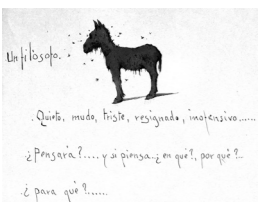 Un filósofo.
. Quieto, mudo, triste, resignado, inofensivo......
. ¿Pensará?.... y si piensa..¿en qué?, por qué?..
. ¿para qué?......